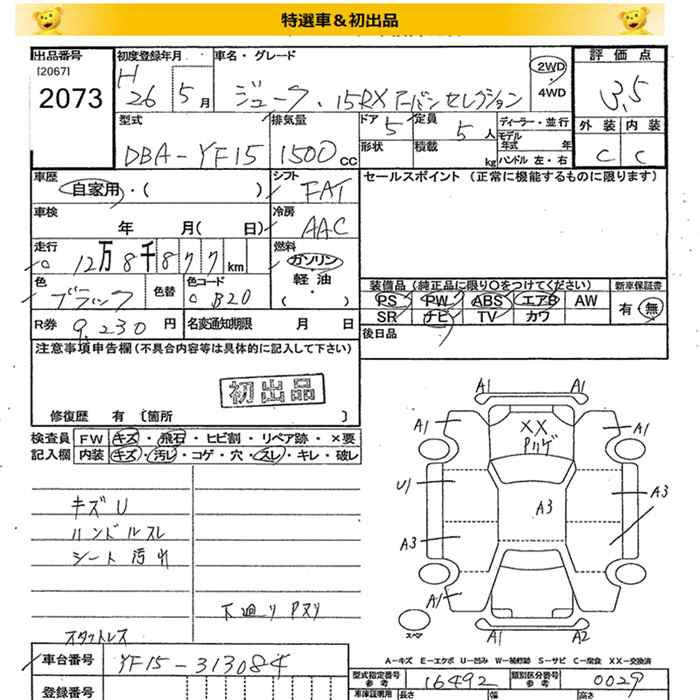 特選車＆初出品
出品番号 初度登録年月 車名・グレード 評価点
[2067] H 2WD
2073 26 5月 ジューク・15RX アーバンセレクション 4WD 3.5
型式 排気量 ドア 5 定員 5人 ディーラー・並行 外装 内装
モデル年式 年
DBA-YF15 1500cc 形状 積載 kg ハンドル 左・右 C C
車歴 シフト セールスポイント（正常に機能するものに限ります）
自家用・( ) FAT
車検 冷房
年 月( 日) AAC
走行 燃料
12万8千877km ガソリン
色 色替 色コード 軽油 装備品（純正品に限り○をつけてください） 新車保証書
ブラック B20 (・) PS PW ABS エアB AW 有 無
R券 9,230円 名変通知期限 月 日 SR ナビ TV カワ
後日品
注意事項申告欄（不具合内容等は具体的に記入して下さい）
初出品
修復歴 有 [箇所 ]
検査員 FW キズ・飛石・ヒビ割・リペア跡・×要
記入欄 内装 キズ・汚レ・コゲ・穴・スレ・キレ・破レ
キズU
ハンドルスレ
シート汚れ
下廻りPヌリ
スタットレス
A1 A1
A1 XX A1
Pハゲ
U1 A3 A3
A3
A1
スペア A1 A2
A-キズ E-エクボ U-凹み W-補修跡 S-サビ C-腐食 XX-交換済
車台番号 YF15-313084
型式指定番号 参考 16492 類別区分番号 参考 0029
登録番号 車庫証明用 参考 長さ 幅 高さ